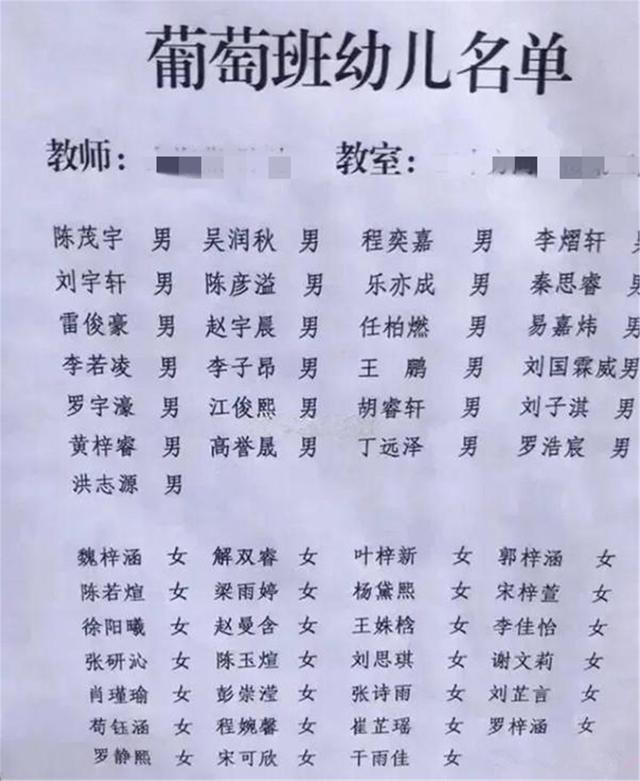 葡萄班幼儿名单
教师： 教室：
陈茂宇 男 吴润秋 男 程奕嘉 男 李熠轩 男
刘宇轩 男 陈彦溢 男 乐亦成 男 秦思睿 男
雷俊豪 男 赵宇晨 男 任柏燃 男 易嘉炜 男
李若凌 男 李子昂 男 王鹏 男 刘国霖威 男
罗宇濠 男 江俊熙 男 胡睿轩 男 刘子淇 男
黄梓睿 男 高誉晟 男 丁远泽 男 罗浩宸 男
洪志源 男
魏梓涵 女 解双睿 女 叶梓新 女 郭梓涵 女
陈若煊 女 梁雨婷 女 杨黛熙 女 宋梓萱 女
徐阳曦 女 赵曼含 女 王姝桅 女 李佳怡 女
张研沁 女 陈玉煊 女 刘思琪 女 谢文莉 女
肖瑾瑜 女 彭崇滢 女 张诗雨 女 刘芷言 女
苟钰涵 女 程婉馨 女 崔芷瑶 女 罗梓涵 女
罗静熙 女 宋可欣 女 干雨佳 女